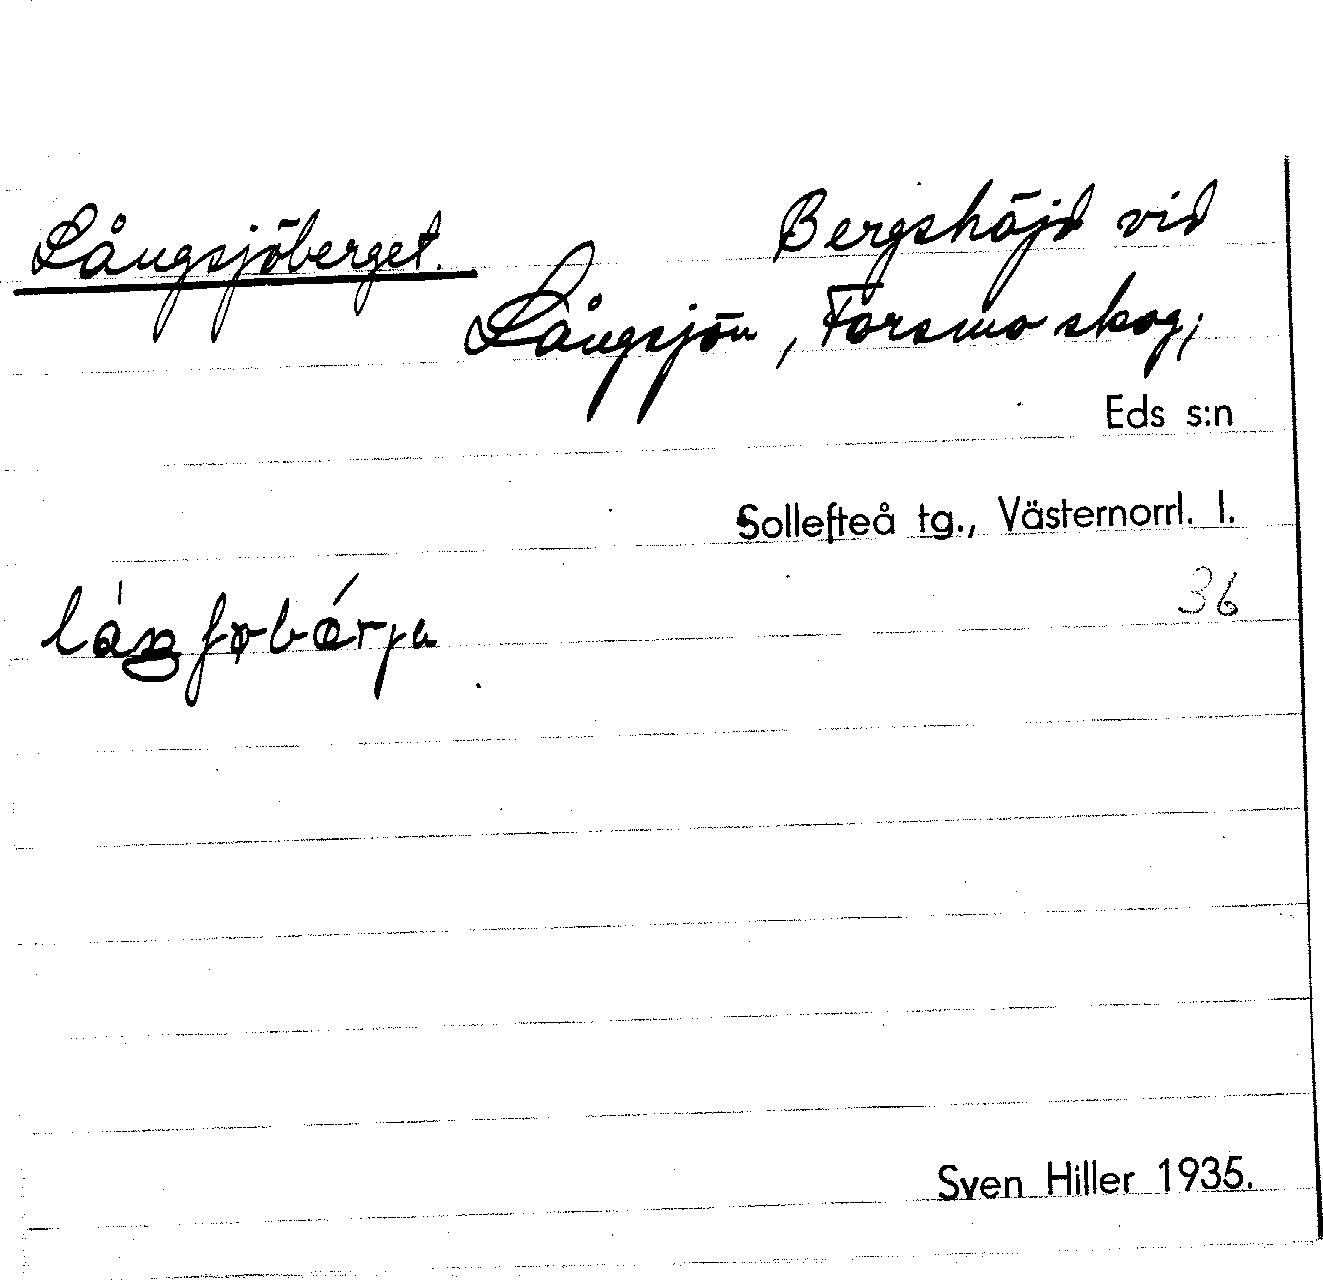 Långsjöberget.
Bergshöjd vid
Långsjön, Forsmo skog;
Eds s:n
Sollefteå tg., Västernorrl. l.
36
Sven Hiller 1935.